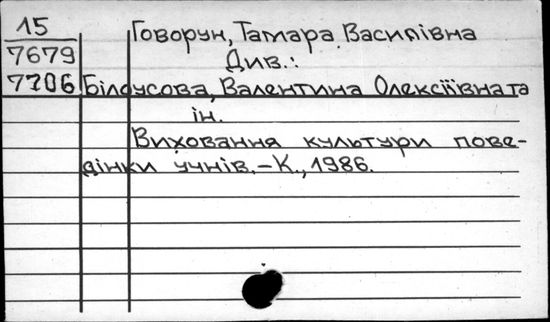 15
7679
7706
Говорун, Тамара Василівна
Див.:
Білоусова, Валентина Олексіївна та
ін.
Виховання культури пове-
дінки учнів. – К., 1986.